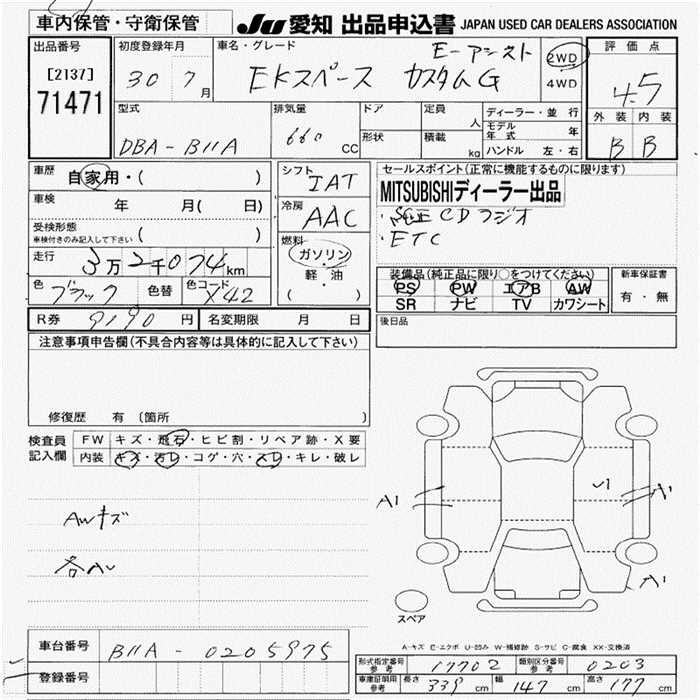 車内保管・守衛保管
JU 愛知 出品申込書 JAPAN USED CAR DEALERS ASSOCIATION
出品番号
[2137]
71471
初度登録年月
30 7月
車名・グレード
E-アシスト
EKスペース カスタムG
2WD
4WD
評価点
4.5
外装 内装
B B
型式
DBA-B11A
排気量
660 CC
ドア
形状
定員 人
積載 kg
ディーラー・並行
モデル年式 年
ハンドル 左・右
車歴 自家用・( )
車検 年 月( 日)
受検形態
車検付きのみ記入して下さい ( )
走行 3万2千074km
色 ブラック 色替 色コード X42
シフト
IAT
冷房
AAC
燃料
ガソリン
・
軽・油
( )
セールスポイント(正常に機能するものに限ります)
MITSUBISHIディーラー出品
CDラジオ
・ETC
装備品(純正品に限り○をつけてください)
PS PW エアB AW
SR ナビ TV カワシート
新車保証書
有・無
R券 9190円 名変期限 月 日
後日品
注意事項申告欄(不具合内容等は具体的に記入して下さい)
修復歴 有(箇所 )
検査員記入欄
FW キズ・飛石・ヒビ割・リペア跡・X要
内装 キズ・汚レ・コゲ・穴・スレ・キレ・破レ
AWキズ
各AU
A1
A1
A1
スペア
A-キズ E-エクボ U-凹み W-補修跡 S-サビ C-腐食 XX-交換済
車台番号 B11A-0205975
登録番号
形式指定番号参考 17702 類別区分番号参考 0203
車庫証明用参考 長さ 339cm 幅 147cm 高さ 177cm